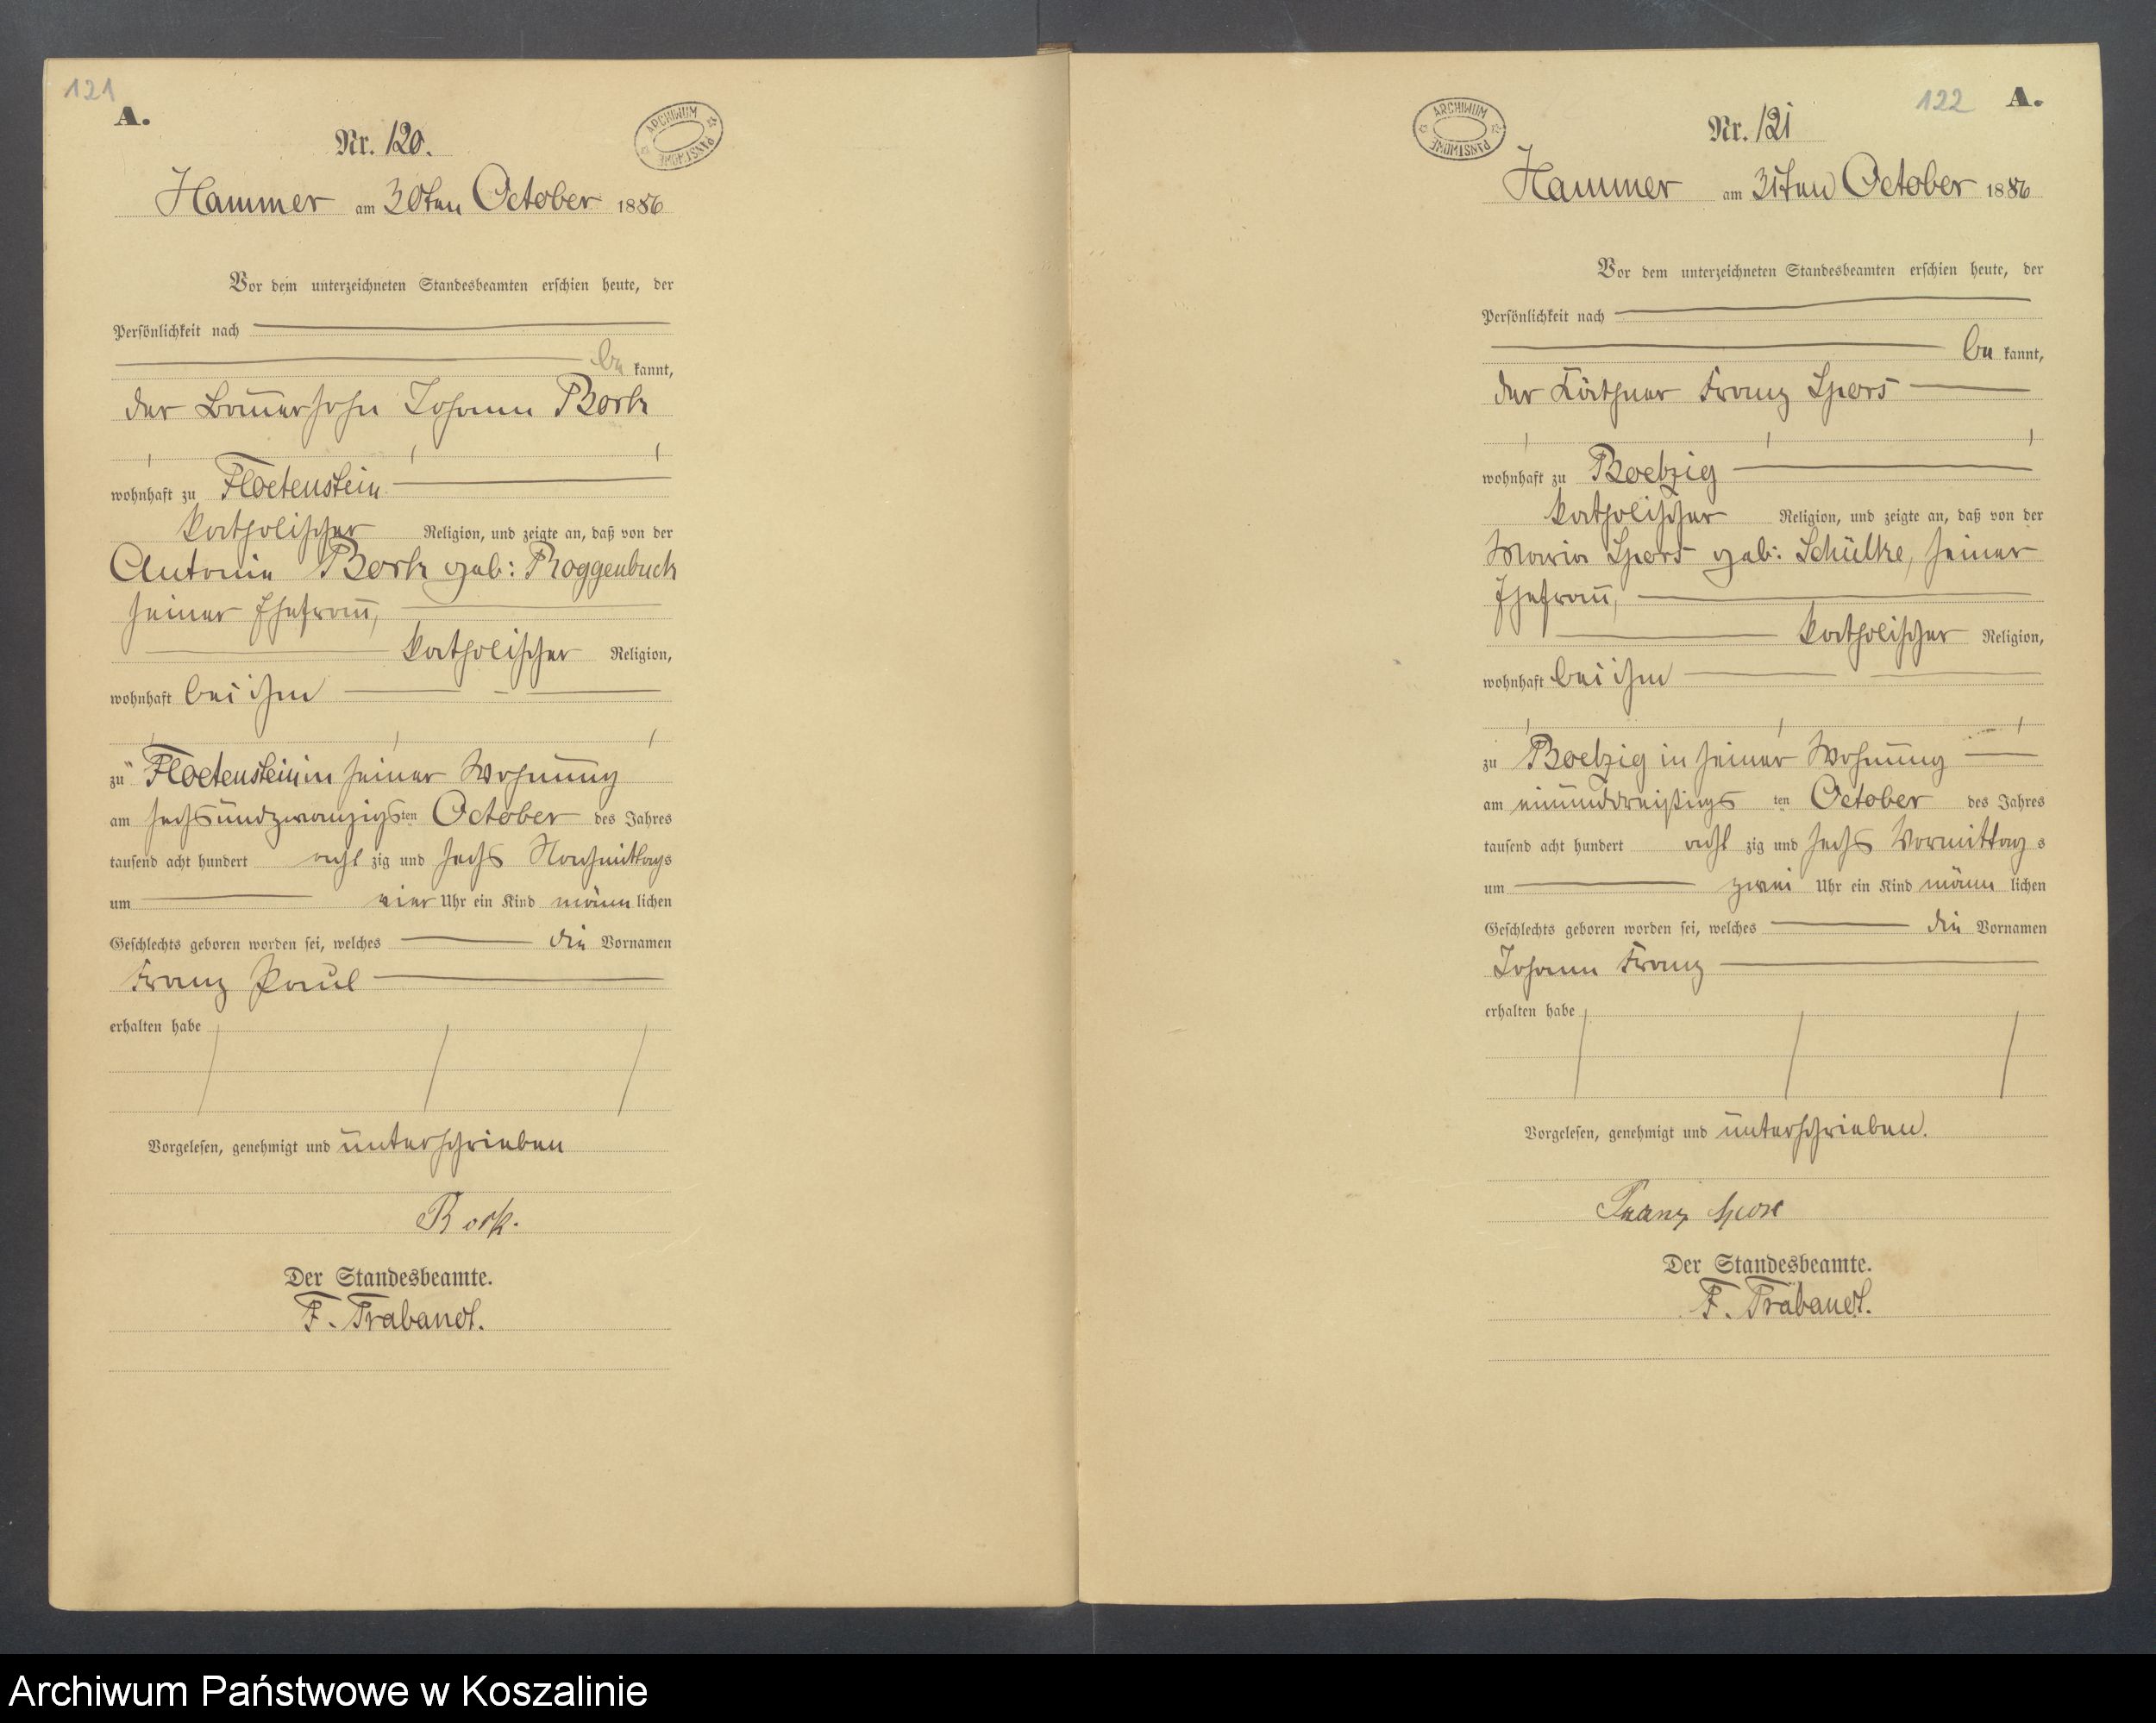 121
A.
ARCHIWUM PAŃSTWOWE
Nr. 120.
Hammer am 30ten October 1886
Vor dem unterzeichneten Standesbeamten erschien heute, der
Persönlichkeit nach
be kannt,
der Bauersohn Johann Bork
wohnhaft zu Floetenstein
katholischer Religion, und zeigte an, daß von der
Antonie Bork geb: Roggenbuck
seiner Ehefrau,
katholischer Religion,
wohnhaft bei ihm
zu Floetenstein in seiner Wohnung
am sechsundzwanzigsten October des Jahres
tausend acht hundert acht zig und sechs Nachmittags
um vier Uhr ein Kind männ lichen
Geschlechts geboren worden sei, welches die Vornamen
Franz Paul
erhalten habe
Vorgelesen, genehmigt und unterschrieben
Bork.
Der Standesbeamte.
F. Trabandt.
122
A.
ARCHIWUM PAŃSTWOWE
Nr. 121
Hammer am 31ten October 1886
Vor dem unterzeichneten Standesbeamten erschien heute, der
Persönlichkeit nach
be kannt,
der Käthner Franz Spors
wohnhaft zu Boelzig
katholischer Religion, und zeigte an, daß von der
Maria Spors geb: Schülke, seiner
Ehefrau,
katholischer Religion,
wohnhaft bei ihm
zu Boelzig in seiner Wohnung
am einunddreißigs ten October des Jahres
tausend acht hundert acht zig und sechs Vormittag s
um zwei Uhr ein Kind männ lichen
Geschlechts geboren worden sei, welches die Vornamen
Johann Franz
erhalten habe
Vorgelesen, genehmigt und unterschrieben.
Franz Spors
Der Standesbeamte.
F. Trabandt.
Archiwum Państwowe w Koszalinie